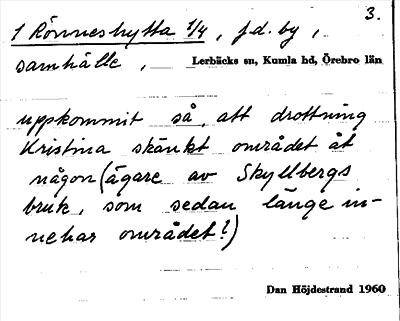 3.
1 Rönneshytta 1/4, f.d. by,
samhälle, Lerbäcks sn, Kumla hd, Örebro län
uppkommit så, att drottning
Kristina skänkt området åt
någon (ägare av Skyllbergs
bruk, som sedan länge in-
nehar området!)
Dan Höjdestrand 1960